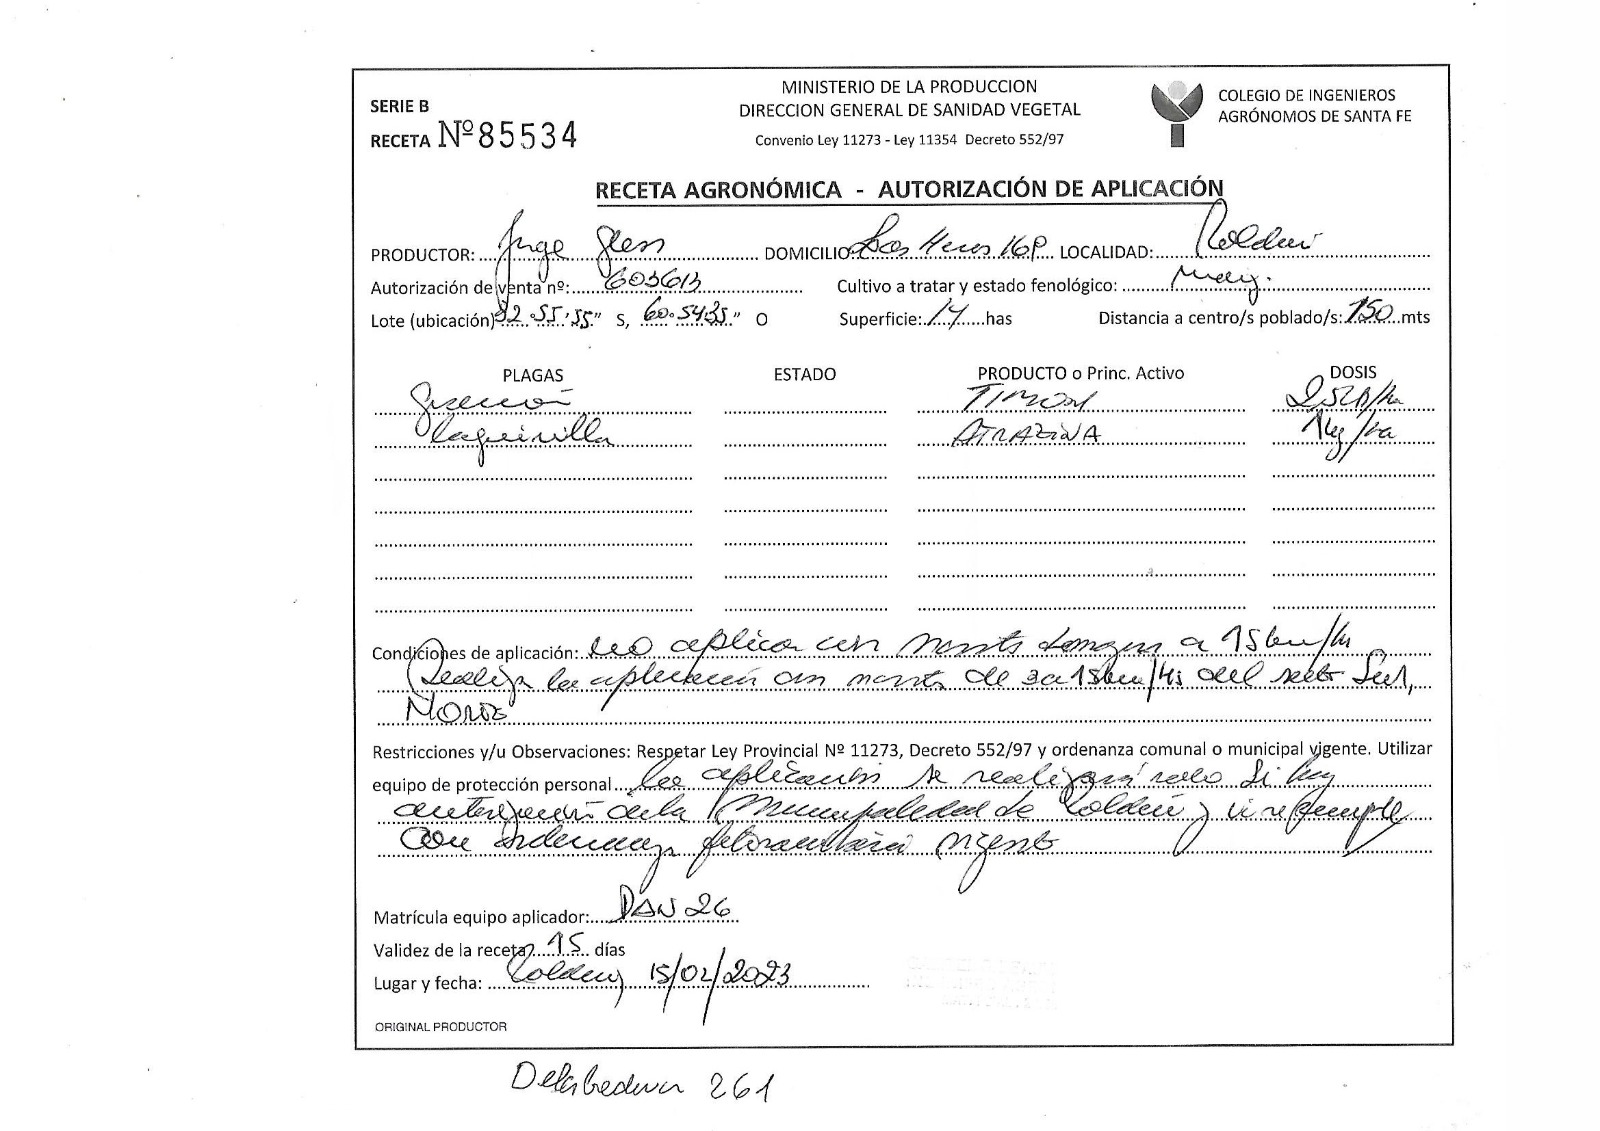 SERIE B
RECETA Nº 85534
MINISTERIO DE LA PRODUCCION
DIRECCION GENERAL DE SANIDAD VEGETAL
Convenio Ley 11273 - Ley 11354 Decreto 552/97
COLEGIO DE INGENIEROS
AGRÓNOMOS DE SANTA FE
RECETA AGRONÓMICA - AUTORIZACIÓN DE APLICACIÓN
PRODUCTOR: Jorge DOMICILIO: LOCALIDAD: Roldán
Autorización de venta nº: 603613 Cultivo a tratar y estado fenológico: maíz.
Lote (ubicación) 32.55'55" S, 60.5435" O Superficie: 14 has Distancia a centro/s poblado/s: 150 mts
PLAGAS ESTADO PRODUCTO o Princ. Activo DOSIS
ATRAZINA 1kg/ha
Condiciones de aplicación: no aplicar con a 15km/hr
Realizar la aplicación con de 3 a 15km/hs del Sur,
Norte
Restricciones y/u Observaciones: Respetar Ley Provincial Nº 11273, Decreto 552/97 y ordenanza comunal o municipal vigente. Utilizar
equipo de protección personal La aplicación se realizará solo si hay
autorización de la Municipalidad de Roldán y si se cumple
con ordenanza fitosanitaria vigente
Matrícula equipo aplicador: DAN 26
Validez de la receta 15 días
Lugar y fecha: Roldán 15/02/2023
ORIGINAL PRODUCTOR
261